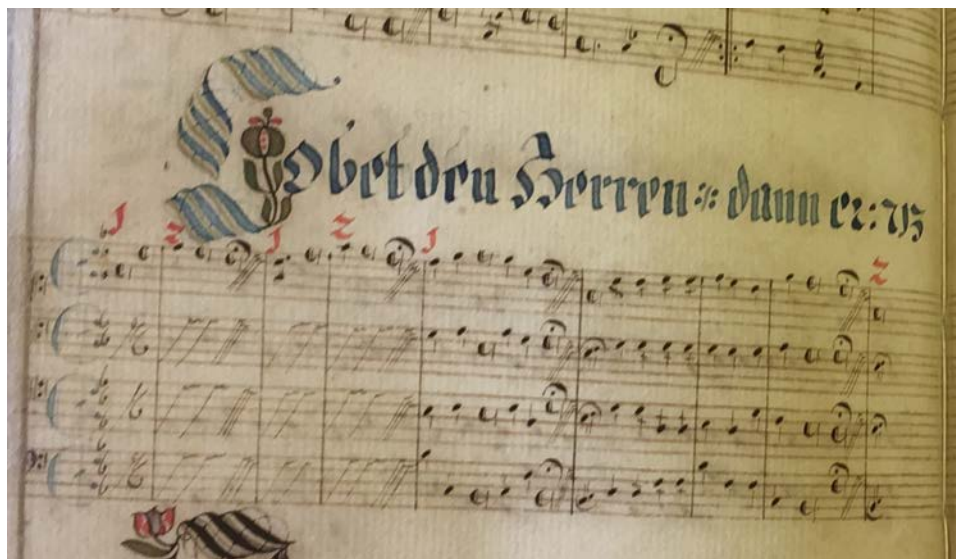 Lobet den Herren: dann er:
1 2 1 2 1 2